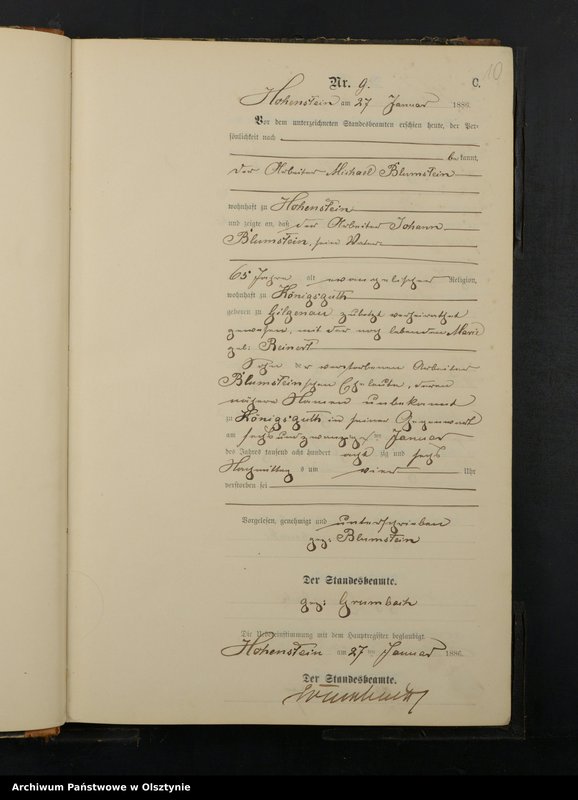 10
Nr. 9. C.
Hohenstein am 27 Januar 1886.
Vor dem unterzeichneten Standesbeamten erschien heute, der Per-
sönlichkeit nach
bekannt,
der Arbeiter Michael Blumstein
wohnhaft zu Hohenstein
und zeigte an, daß der Arbeiter Johann
Blumstein, sein Vater
65 Jahre alt evangelischer Religion,
wohnhaft zu Königsguth
geboren zu Gilgenau zuletzt verheirathet
gewesen, mit der noch lebenden Marie
geb: Reinert
Sohn der verstorbenen Arbeiter
Blumstein'schen Eheleute, deren
nähere Namen unbekannt
zu Königsguth in seiner Gegenwart
am sechsundzwanzigsten Januar
des Jahres tausend acht hundert achtzig und sechs
Nachmittags um vier Uhr
verstorben sei
Vorgelesen, genehmigt und unterschrieben
gez: Blumstein
Der Standesbeamte.
gez: Grumbach
Die Uebereinstimmung mit dem Hauptregister beglaubigt
Hohenstein am 27ten Januar 1886.
Der Standesbeamte.
Grumbach
Archiwum Państwowe w Olsztynie